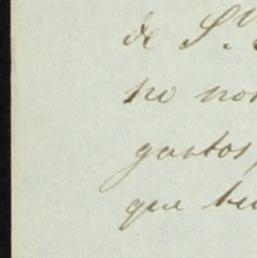 de S.
no no
gastos,
que